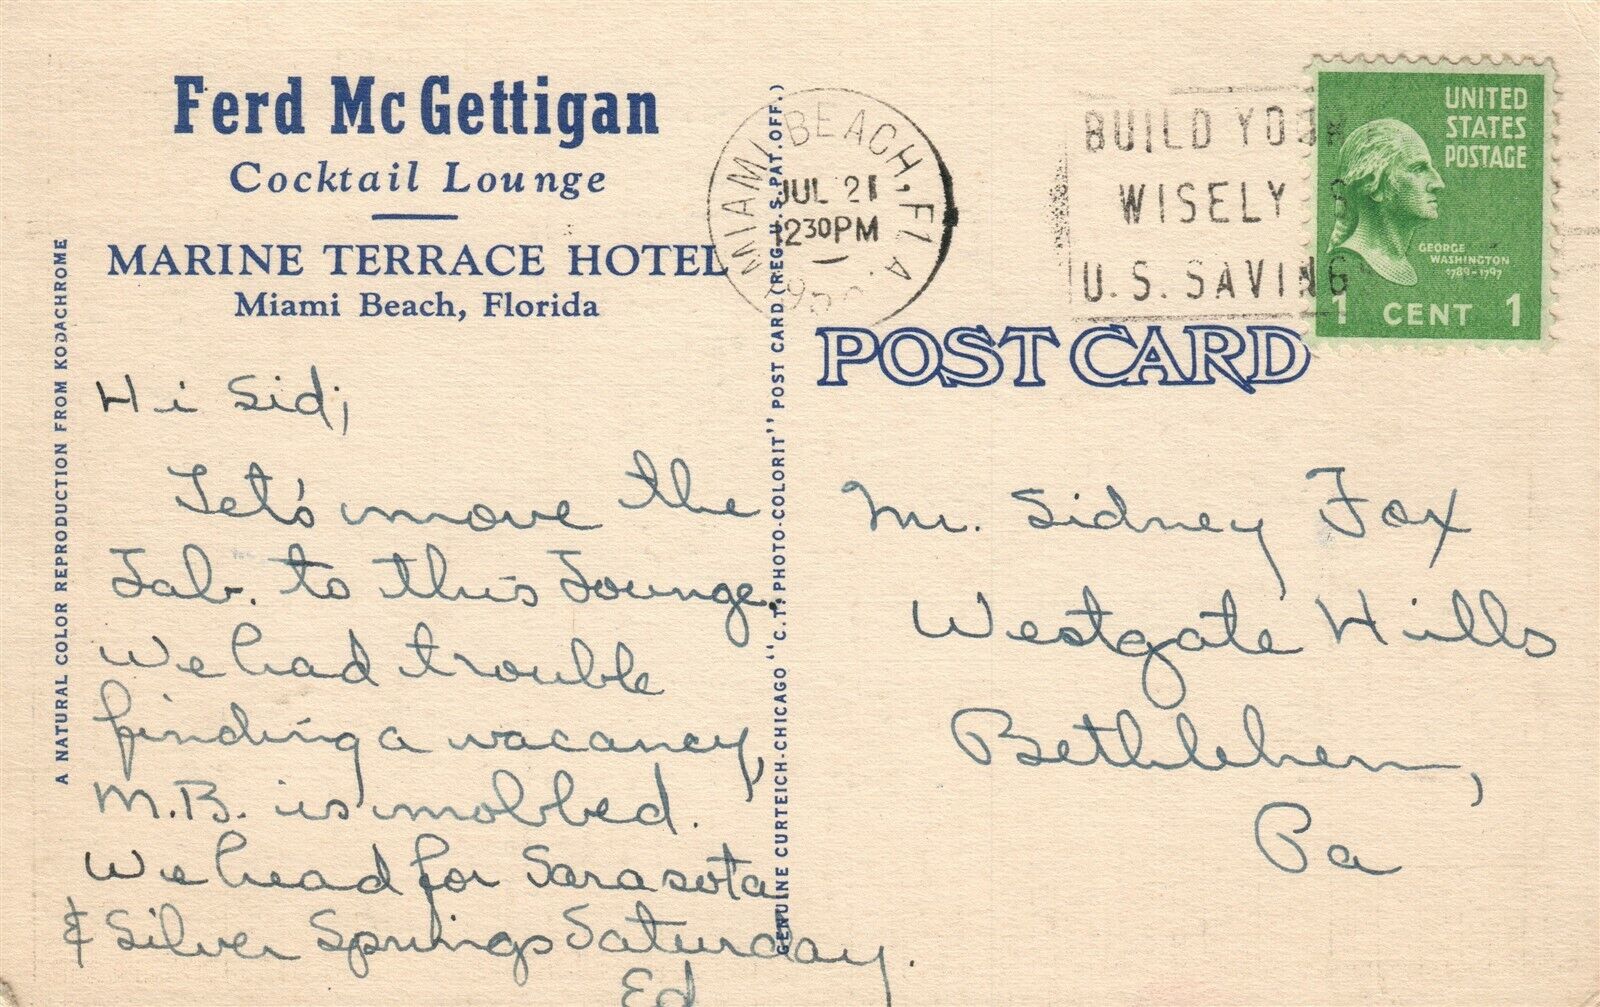 Ferd McGettigan
Cocktail Lounge
MARINE TERRACE HOTEL
Miami Beach, Florida
A NATURAL COLOR REPRODUCTION FROM KODACHROME
Hi Sid;
Let's move the
Lab. to this Lounge.
We had trouble
finding a vacancy,
M.B. is mobbed.
We head for Sarasota
& Silver Springs Saturday.
Ed
GENUINE CURTEICH-CHICAGO "C.T. PHOTO-COLORIT" POST CARD (REG. U.S. PAT. OFF.)
MIAMI BEACH, FLA.
JUL 21
230PM
BUILD YOUR
WISELY
U.S. SAVING
UNITED
STATES
POSTAGE
GEORGE
WASHINGTON
1789-1797
1 CENT 1
POST CARD
Mr. Sidney Fox
Westgate Hills
Bethlehem,
Pa